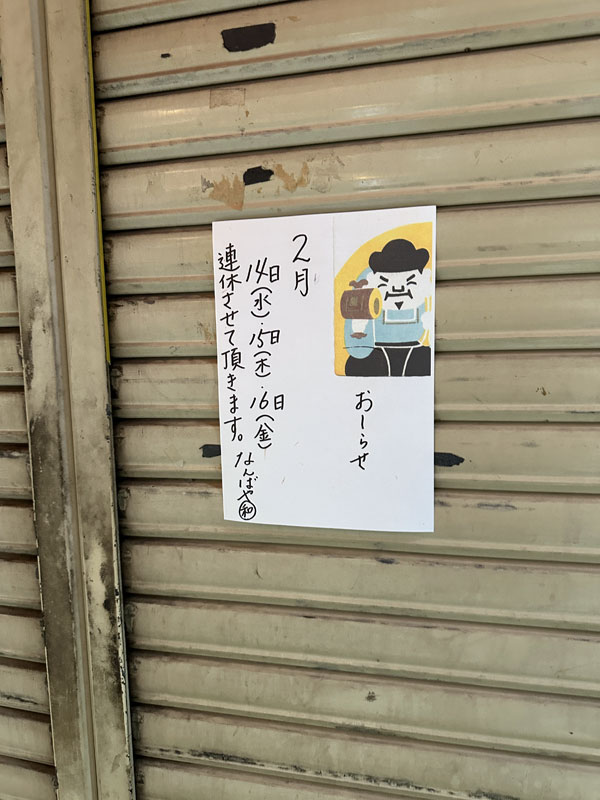 おしらせ
2月
14日(水)・15日(木)・16日(金)
連休させて頂きます。
なんばや㊑